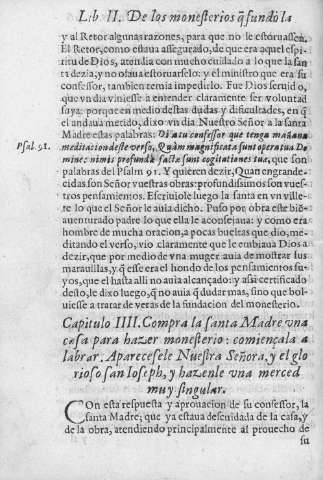 Lib II. De los monesterios q̃ fundò la
y al Retor algunas razones, para que no le estoruassen.
El Retor, como estaua assegurado, de que era aquel espi-
ritu de Dios, atendia con mucho cuidado a lo que la san
ta dezia, y no osaua estoruarselo: y el ministro que era su
confessor, tambien temia impedirlo. Fue Dios seruido,
que vn dia viniesse a entender claramente ser voluntad
suya: porque en medio destas dudas, y dificultades, en q̃
el andaua metido, dixo vn dia Nuestro Señor a la santa
Madre estas palabras: Di a tu confessor que tenga mañana
Psal. 91.
meditacion deste verso, Quàm magnificata sunt opera tua Do
mine: nimis profundæ factæ sunt cogitationes tuæ, que son
palabras del Psalm 91. Y quieren dezir, Quan engrande-
cidas son Señor vuestras obras: profundissimos son vues-
tros pensamientos. Escriuiole luego la santa en vn ville-
te lo que el Señor le auia dicho. Puso por obra este bié-
auenturado padre lo que ella le aconseja: y como era
hombre de mucha oracion, a pocas bueltas que dio, me-
ditando el verso, vio claramente que le embiaua Dios a
dezir, que por medio de vna muger auia de mostrar sus
marauillas, y q̃ esse era el hondo de los pensamientos su-
yos, que el hasta alli no auia alcançado: y assi certificado
desto, le dixo luego, q̃ no auia q̃ dudar mas, sino que bol-
uiesse a tratar de veras de la fundacion del monesterio.
Capitulo IIII. Compra la santa Madre vna
casa para hazer monesterio: comiençala a
labrar. Aparecesele Nuestra Señora, y el glo
rioso san Ioseph, y hazenle vna merced
muy singular.
COn esta respuesta y aprouacion de su confessor, la
santa Madre; que ya estaua descuidada de la casa, y
de la obra, atendiendo principalmente al prouecho de
su